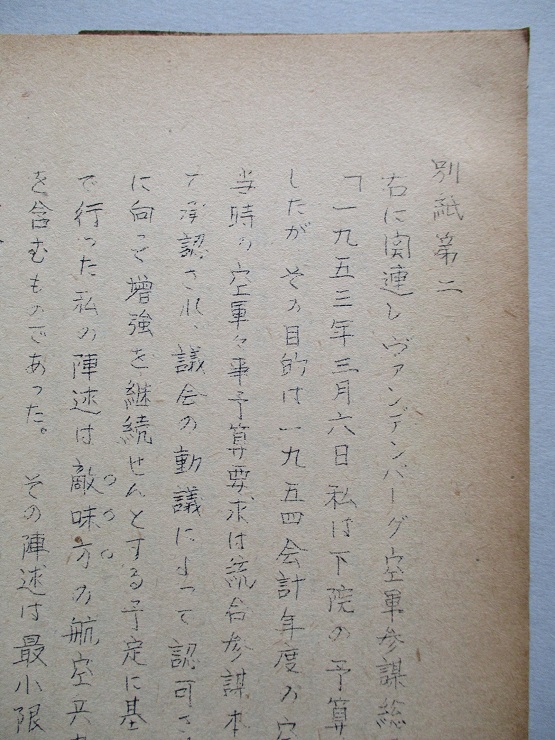 別紙第二
右に関連しヴァンデンバーグ空軍参謀総
「一九五三年三月六日私は下院の予算
したが その目的は一九五四会計年度の空
当時の空軍々事予算要求は統合参謀本
て承認され、議会の動議によって認可さ
に向って増強を継続せんとする予定に基
で行った私の陣述は敵味方の航空兵
を含むものであった。 その陣述は最小限